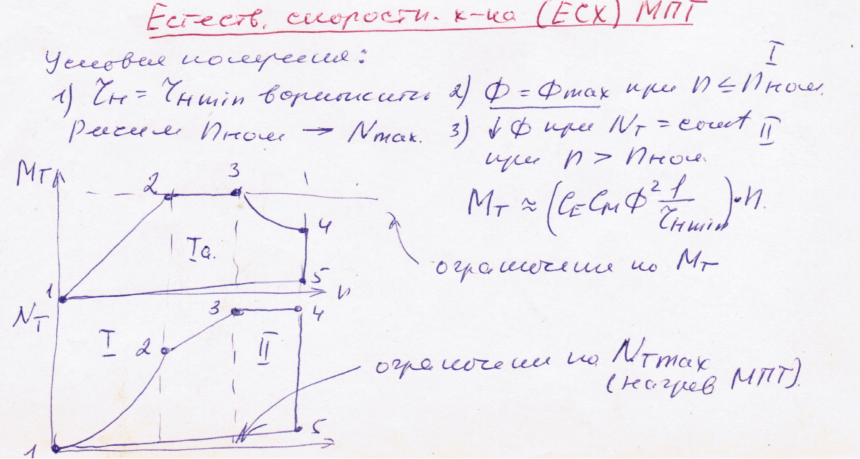 Естеств. скорости. х-ка (ЕСХ) МПТ
Условия получения:
1) τн = τн min 2) Ф = Фmax при n ≤ nном. I
Режим nном → Nmax. 3) ↓Ф при NT = const II
при n > nном
MT ≈ (CE CM Ф² 1/τн min)·n.
MT 2 3
4
Iа.
5
1 n
ограничение по MT
NT 3 4
I 2 II
ограничение по NTmax
(нагрев МПТ).
1 5